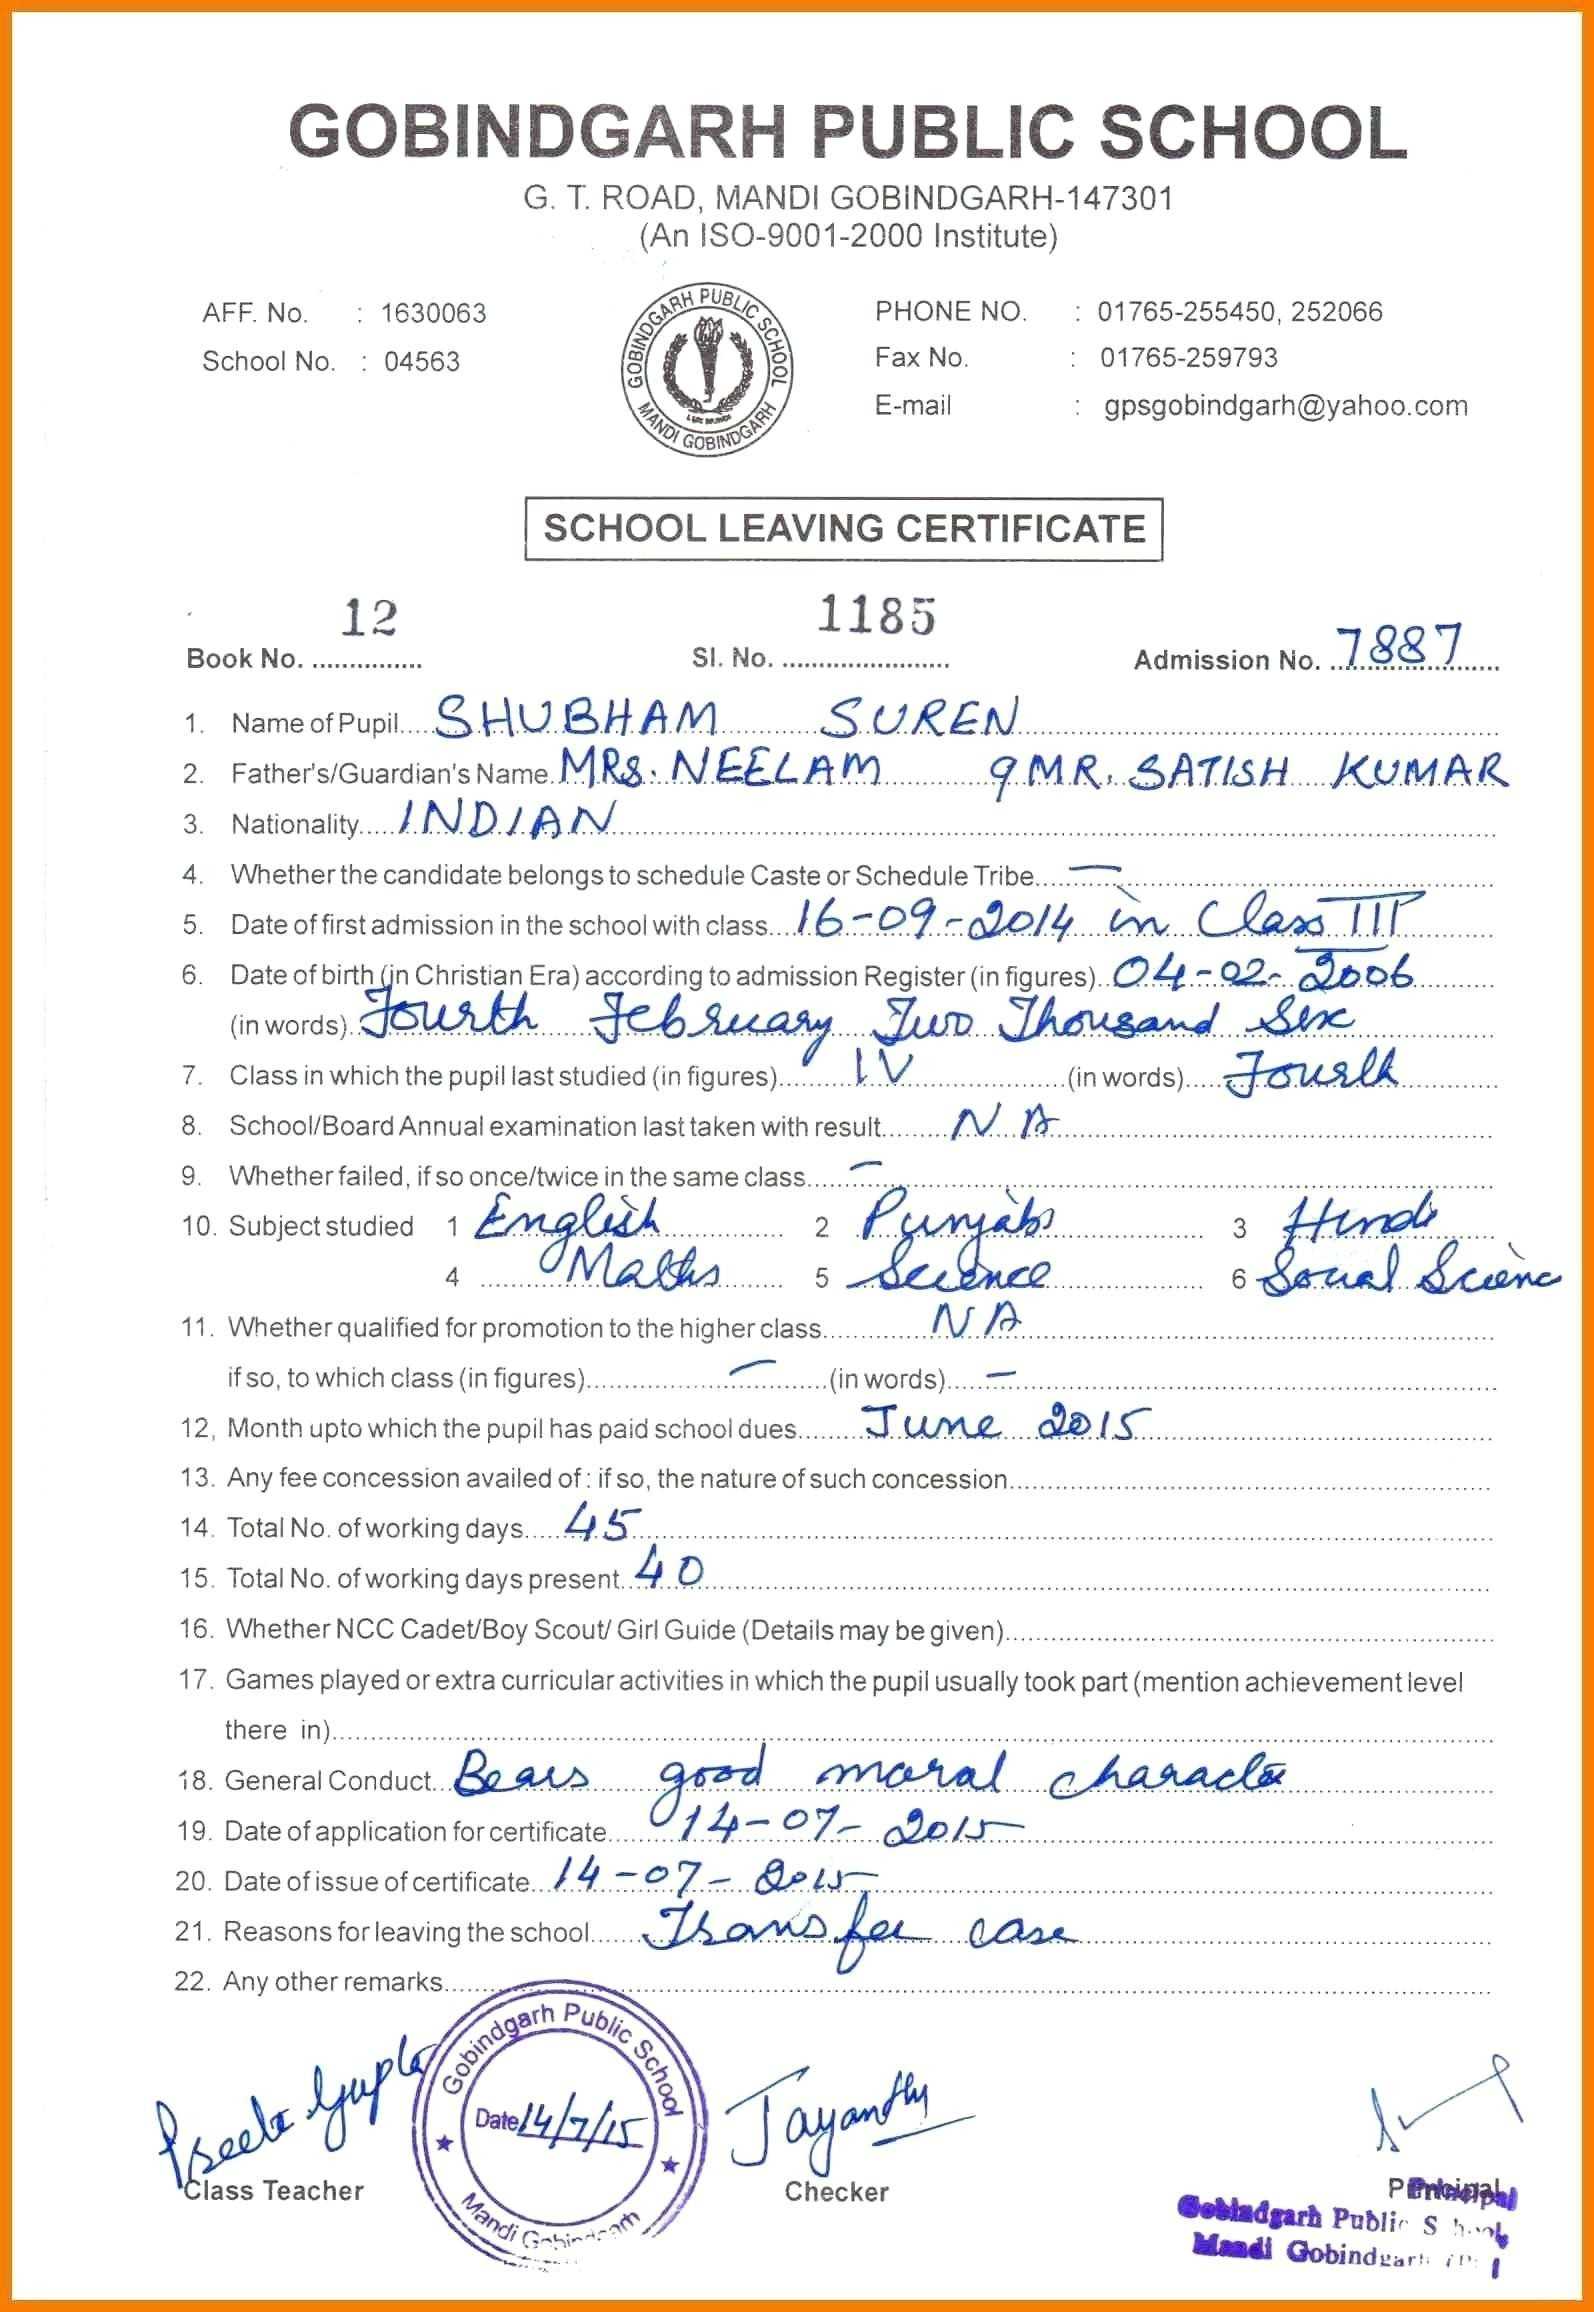 GOBINDGARH PUBLIC SCHOOL
G. T. ROAD, MANDI GOBINDGARH-147301
(An ISO-9001-2000 Institute)
AFF. No. : 1630063
School No. : 04563
GOBINDGARH PUBLIC SCHOOL
MANDI GOBINDGARH
PHONE NO. : 01765-255450, 252066
Fax No. : 01765-259793
E-mail : gpsgobindgarh@yahoo.com
SCHOOL LEAVING CERTIFICATE
Book No. 12 Sl. No. 1185 Admission No. 7887
1. Name of Pupil SHUBHAM SUREN
2. Father's/Guardian's Name MRS. NEELAM MR. SATISH KUMAR
3. Nationality INDIAN
4. Whether the candidate belongs to schedule Caste or Schedule Tribe —
5. Date of first admission in the school with class 16-09-2014 in Class III
6. Date of birth (in Christian Era) according to admission Register (in figures) 04-02-2006
(in words) Fourth February Two Thousand Six
7. Class in which the pupil last studied (in figures) IV (in words) Fourth
8. School/Board Annual examination last taken with result NA
9. Whether failed, if so once/twice in the same class —
10. Subject studied 1 English 2 Punjabi 3 Hindi
4 Maths 5 Science 6 Social Scienc
11. Whether qualified for promotion to the higher class NA
if so, to which class (in figures) — (in words) —
12, Month upto which the pupil has paid school dues June 2015
13. Any fee concession availed of : if so, the nature of such concession
14. Total No. of working days 45
15. Total No. of working days present 40
16. Whether NCC Cadet/Boy Scout/ Girl Guide (Details may be given)
17. Games played or extra curricular activities in which the pupil usually took part (mention achievement level
there in)
18. General Conduct Bears good moral character
19. Date of application for certificate 14-07-2015
20. Date of issue of certificate 14-07-2015
21. Reasons for leaving the school Transfer case
22. Any other remarks
Gobindgarh Public School
Date 14/7/15
Mandi Gobindgarh
Preeti Gupta
Class Teacher
Jayanthy
Checker
Principal
Principal
Gobindgarh Public School
Mandi Gobindgarh